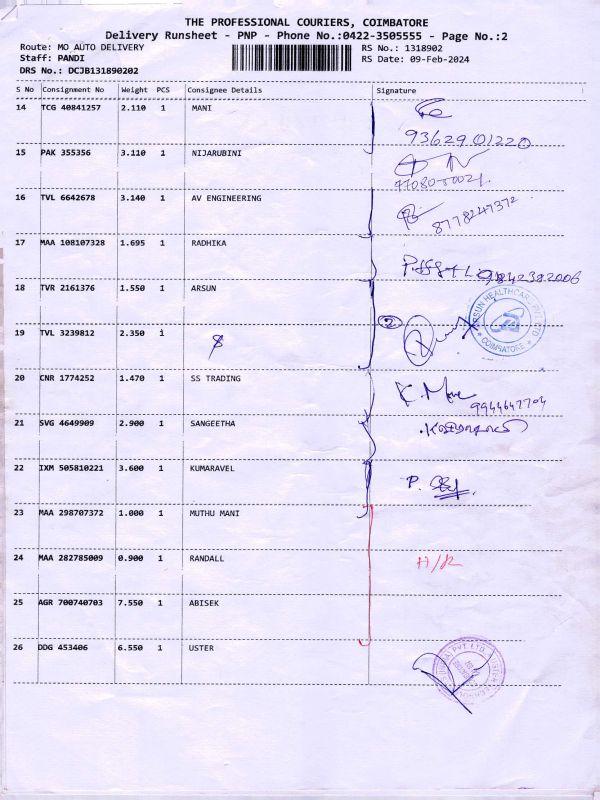 THE PROFESSIONAL COURIERS, COIMBATORE
Delivery Runsheet - PNP - Phone No.:0422-3505555 - Page No.:2
Route: MO AUTO DELIVERY RS No.: 1318902
Staff: PANDI RS Date: 09-Feb-2024
DRS No.: DCJB131890202
S No Consignment No Weight PCS Consignee Details Signature
14 TCG 40841257 2.110 1 MANI
93629 01220
15 PAK 355356 3.110 1 NIJARUBINI
16 TVL 6642678 3.140 1 AV ENGINEERING
8778247372
17 MAA 108107328 1.695 1 RADHIKA
9842382006
18 TVR 2161376 1.550 1 ARSUN
2
COIMBATORE
19 TVL 3239812 2.350 1
20 CNR 1774252 1.470 1 SS TRADING
9944647704
21 SVG 4649909 2.900 1 SANGEETHA
22 IXM 505810221 3.600 1 KUMARAVEL
P.
23 MAA 298707372 1.000 1 MUTHU MANI
24 MAA 282785009 0.900 1 RANDALL
H/R
25 AGR 700740703 7.550 1 ABISEK
26 DDG 453406 6.550 1 USTER